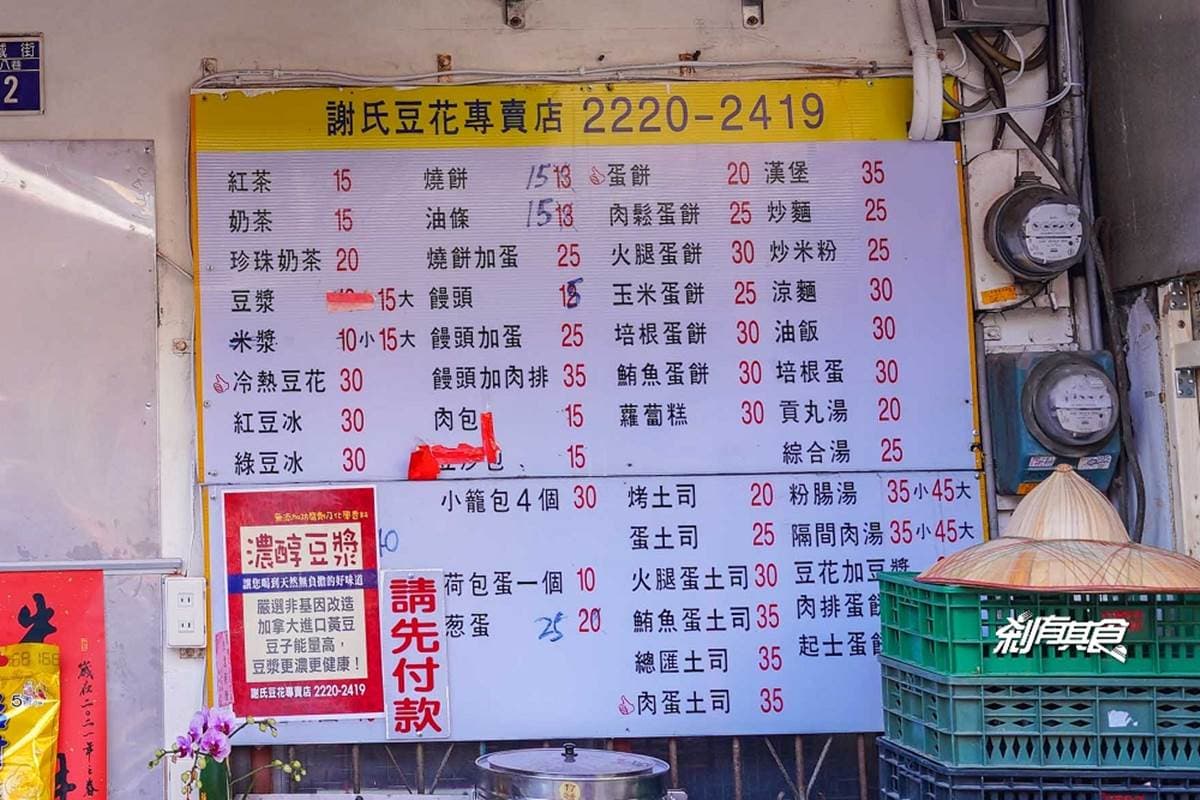 街
2
謝氏豆花專賣店 2220-2419
紅茶 15
奶茶 15
珍珠奶茶 20
豆漿 15大
米漿 10小15大
冷熱豆花 30
紅豆冰 30
綠豆冰 30
燒餅 15 13
油條 15 13
燒餅加蛋 25
饅頭 15
饅頭加蛋 25
饅頭加肉排 35
肉包 15
15
小籠包4個 30
荷包蛋一個 10
葱蛋 25 20
蛋餅 20
肉鬆蛋餅 25
火腿蛋餅 30
玉米蛋餅 25
培根蛋餅 30
鮪魚蛋餅 30
蘿蔔糕 30
烤土司 20
蛋土司 25
火腿蛋土司 30
鮪魚蛋土司 35
總匯土司 35
肉蛋土司 35
漢堡 35
炒麵 25
炒米粉 25
涼麵 30
油飯 30
培根蛋 30
貢丸湯 20
綜合湯 25
粉腸湯 35小45大
隔間肉湯 35小45大
豆花加豆漿
肉排蛋餅
起士蛋餅
無添加防腐劑及化學香料
濃醇豆漿
讓您喝到天然無負擔的好味道
嚴選非基因改造
加拿大進口黃豆
豆子能量高，
豆漿更濃更健康！
謝氏豆花專賣店 2220-2419
請先付款
剎有其食
歲在二〇二一年之春